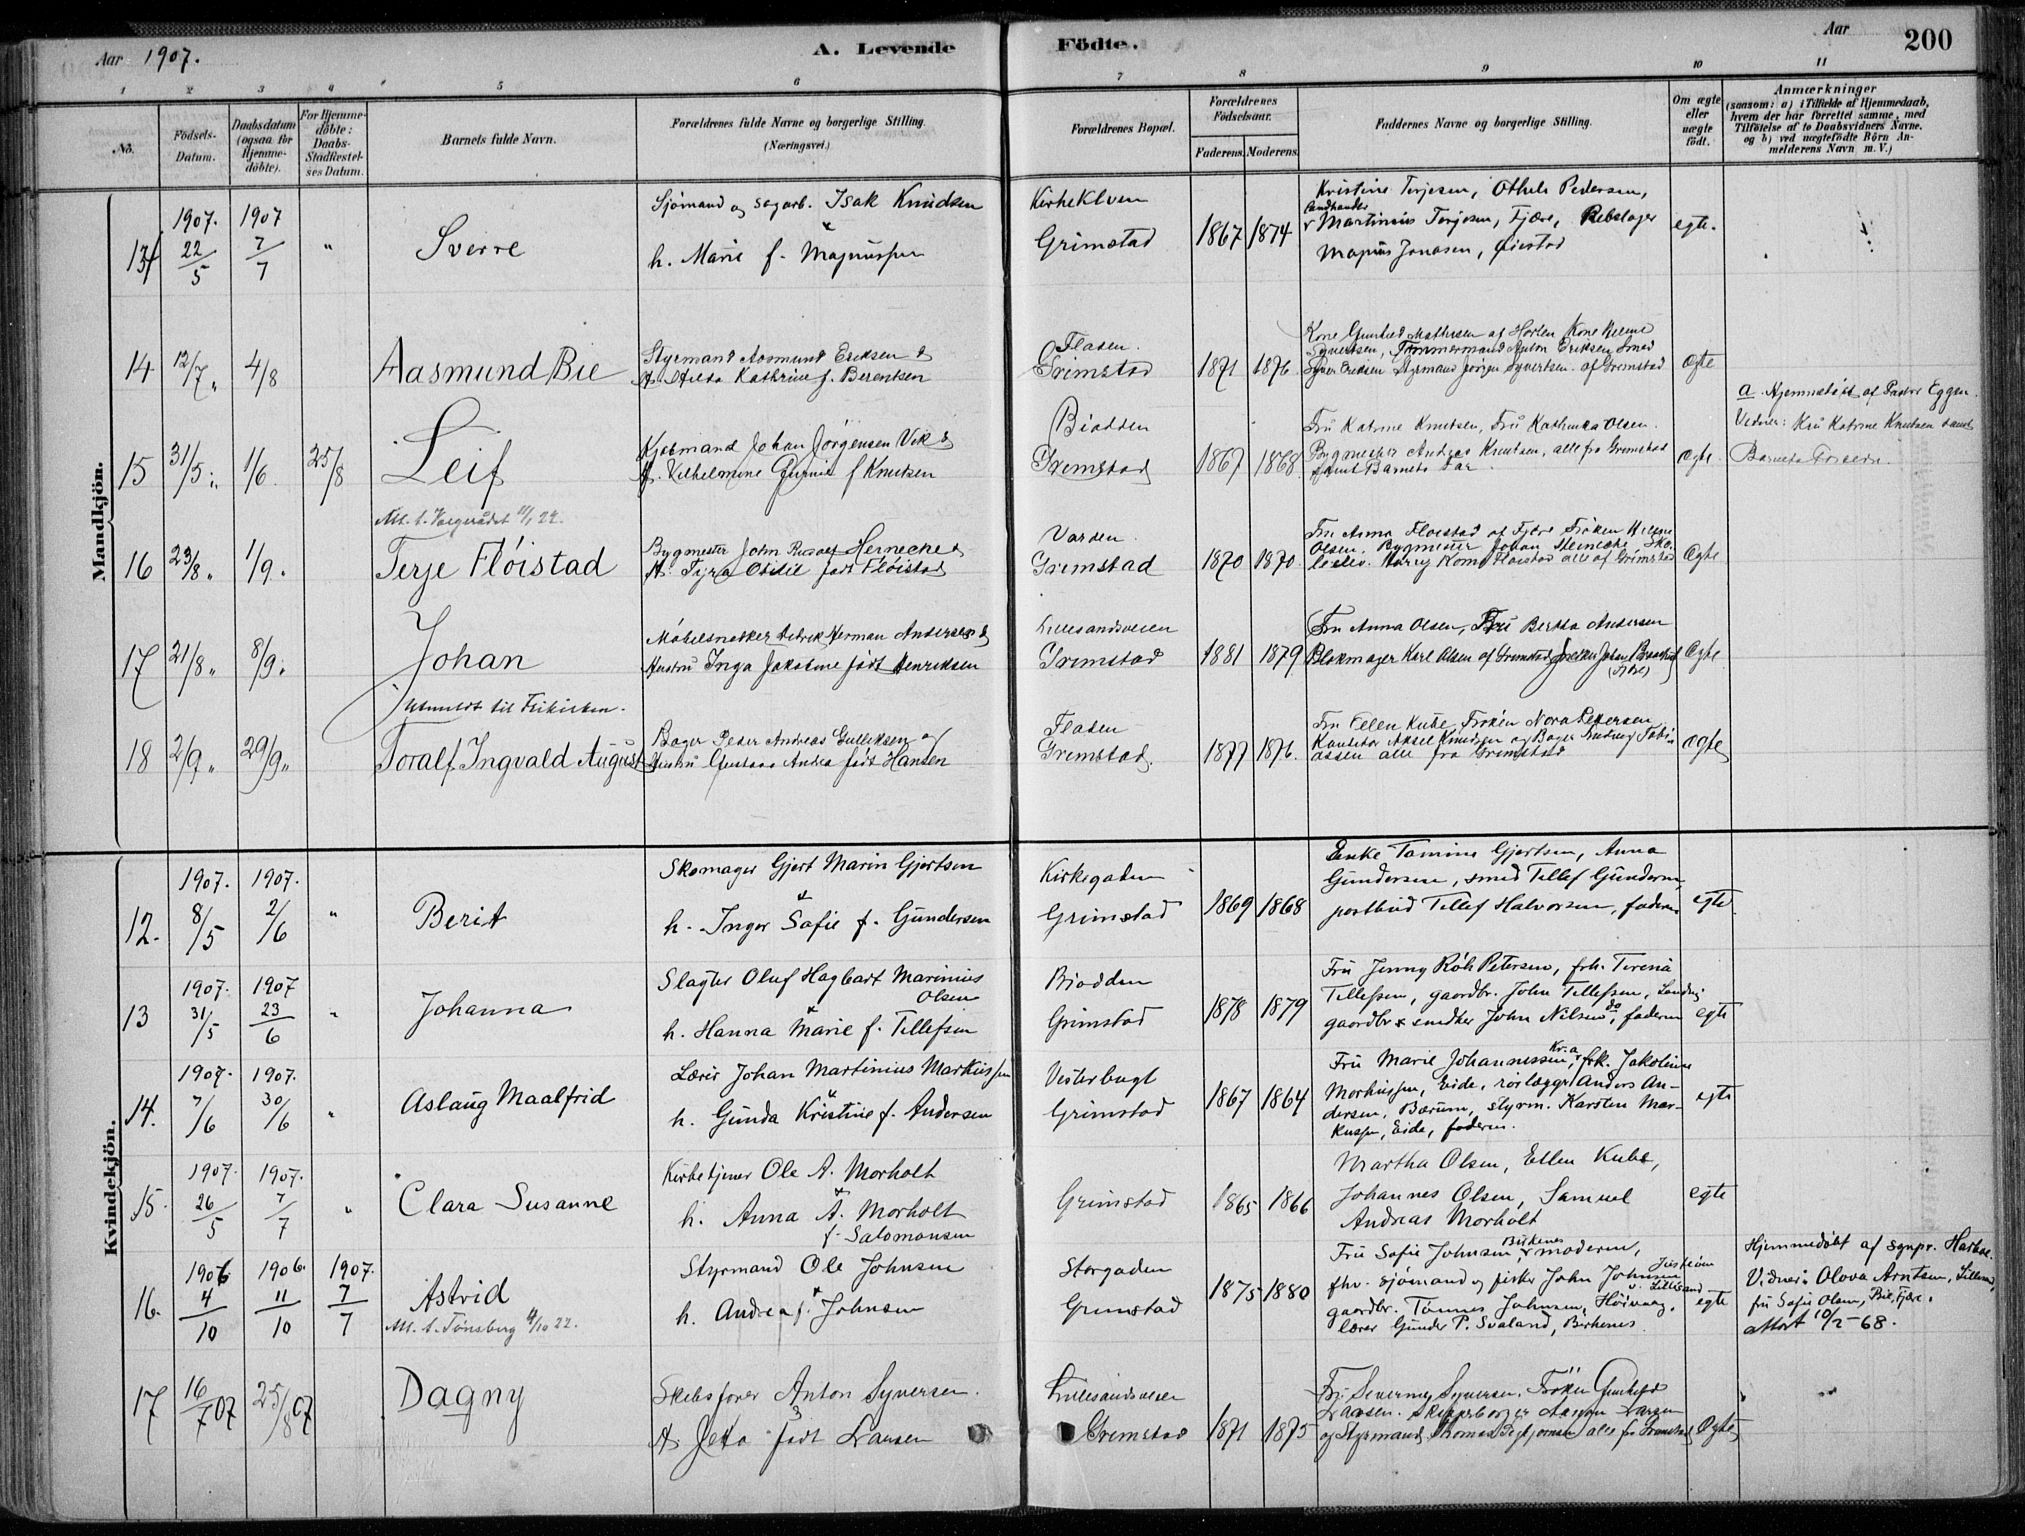 Aar 1907.
A. Levende
Födte.
Aar
200
1 2 3 4 5 6 7 8 9 10 11
No.
Födsels-Datum.
Daabsdatum (ogsaa for Hjemme-döbte).
For Hjemme-döbte: Daabs-Stadfæstel-ses Datum.
Barnets fulde Navn.
Forældrenes fulde Navne og borgerlige Stilling.
(Næringsvei.)
Forældrenes Bopæl.
Forældrenes Fødselsaar.
Faderens. Moderens.
Faddernes Navne og borgerlige Stilling.
Om ægte eller uægte født.
Anmærkninger
(saasom: a) i Tilfælde af Hjemmedaab, hvem der har forrettet samme, med Tilföielse af to Daabsvidners Navne, og b) ved uægtefödte Börn An-melderens Navn m. V.)
Mandkjön.
13 1907. 22/5 1907 7/7 " Sverre
Sjømand og sagarb. Isak Knudsen
&
h. Marie f. Magnussen
Grimstad
1867 1874
Kristine Terjesen, Othele Pedersen,
Martinius Terjesen, Fjære, Rebslager
Magnus Jonasen, Øiestad
egte.
14 12/7 " 4/8 Aasmund Bie
Styrmand Aasmund Eriksen &
H. Hilda Kathrine f. Berentsen
Fladen.
Grimstad
1871 1876
Kone Gunhild Mathisen af Horten Kone
Syvertsen, Tømmermand Anton Eriksen Smed
Syver Eriksen Styrmand Jörgen Syvertsen af Grimstad
ægte
15 31/5 " 1/6. 25/8 Leif
Johan Jørgensen Vik &
H. Vilhelmine Gurine f Knutsen
Biodden
Grimstad
1867 1868
Fru Katrine Knutsen, Fru Kathinka Olsen.
Bygmester Andreas Knutsen, alle fra Grimstad
samt Barnets Far
ægte.
a. Hjemmedøbt af Pastor Eggen.
Vidner: Fru Katrine Knutsen samt
Barnets
16 23/8 " 1/9. Terje Flöistad
Bygmester John Rudolf &
H. Tyra Otilie født Flöistad
Varden.
Grimstad
1870 1870.
Fru Anna Floistad af Fjære Frøken
Olsen. Bygmester Johan
Harry Floistad alle af Grimstad
Ægte
17 21/8 " 8/9. Johan
Udmeldt til Frikirken.
Møbelsnekker Herman Andersen &
Hustru Inga Jakobine født Henriksen
Lillesandsveien
Grimstad
1881 1879
Fru Anna Olsen, Fru Bertha Andersen
Blokmager Karl Olsen af Grimstad
Ægte
18 2/9 " 29/9 " Toralf Ingvald August
Bager Peder Andreas Gulliksen og
Hustru Gustava Andrea født Hansen
Fladen
Grimstad.
1877 1876.
Fru Ellen Kube, Frøken Nora Pettersen
Kontorist Aksel Knudsen og Bager Tobi-
assen alle fra Grimstad
ægte
Kvindekjön.
12. 1907. 8/5 1907. 2/6 " Berit
Skomager Gjert Marin Gjertsen
&
h. Inger Sofie f. Gundersen
Kirkegaden
Grimstad
1869 1868
Enke Tomine Gjertsen, Anna
Gundersen, smed Tellef Gundersen,
postbud Tellef Halvorsen, faderen
egte
13 1907. 31/5 1907 23/6 " Johanna
Slagter Oluf Hagbart Marinius
Olsen
&
h. Hanna Marie f. Tellefsen
Biodden
Grimstad
1878 1879
Fru Jenny Röh Petersen, frk. Terena
Tellefsen, gaardbr. John Tellefsen,
gaardbr & snedker John Nilsen do, faderen
egte
14. 1907. 7/6 1907. 30/6 " Aslaug Maalfrid
Lærer Johan Martinius Markussen
&
h. Gunda Kristine f. Andersen
Vesterbugt
Grimstad
1867 1864
Fru Marie Johannessen, Kr.a, frk. Jakobine
Morkussen, Eide, rørlægger Anders An-
dersen, Bærum, styrm. Karsten Mar-
kussen, Eide, faderen.
egte
15. 1907. 26/5 1907. 7/7 " Clara Susanne
Kirketjener Ole A. Morholt
&
h. Anna A. Morholt
f. Salomonsen
Grimstad
1865 1866
Martha Olsen, Ellen Kube,
Johannes Olsen, Samuel
Andreas Morholt
egte
16. 1906 4/10 1906. 11/10 1907. 7/7 Astrid
Att. t. Tønsberg 22.
Styrmand Ole Johnsen
&
h. Andrea f. Johnsen
Storgaden
Grimstad
1875 1880
Fru Sofie Johnsen, Birkenes & moderen,
fhv. sjømand og fisker John Johnsen
gaardbr. Tønnes Johnsen, Høivaag,
lærer Gunder P. Svaland, Birkenes
egte
Hjemmedøbt af sgnpr. Harboe.
Vidner: Olava Arntsen, Lillesand,
fru Sofie Olsen, Bie, Fjære.
attest 10/5-68.
17 16/7 07 25/8 07 Dagny
Skibsfører Anton Syversen.
&
H. født Larsen
Lillesandsveien
Grimstad
1871 1875
Fru Severine Syversen. Frøken Gunhild
Larsen. Larsen
og Styrmand Thomas alle fra Grimstad
Ægte